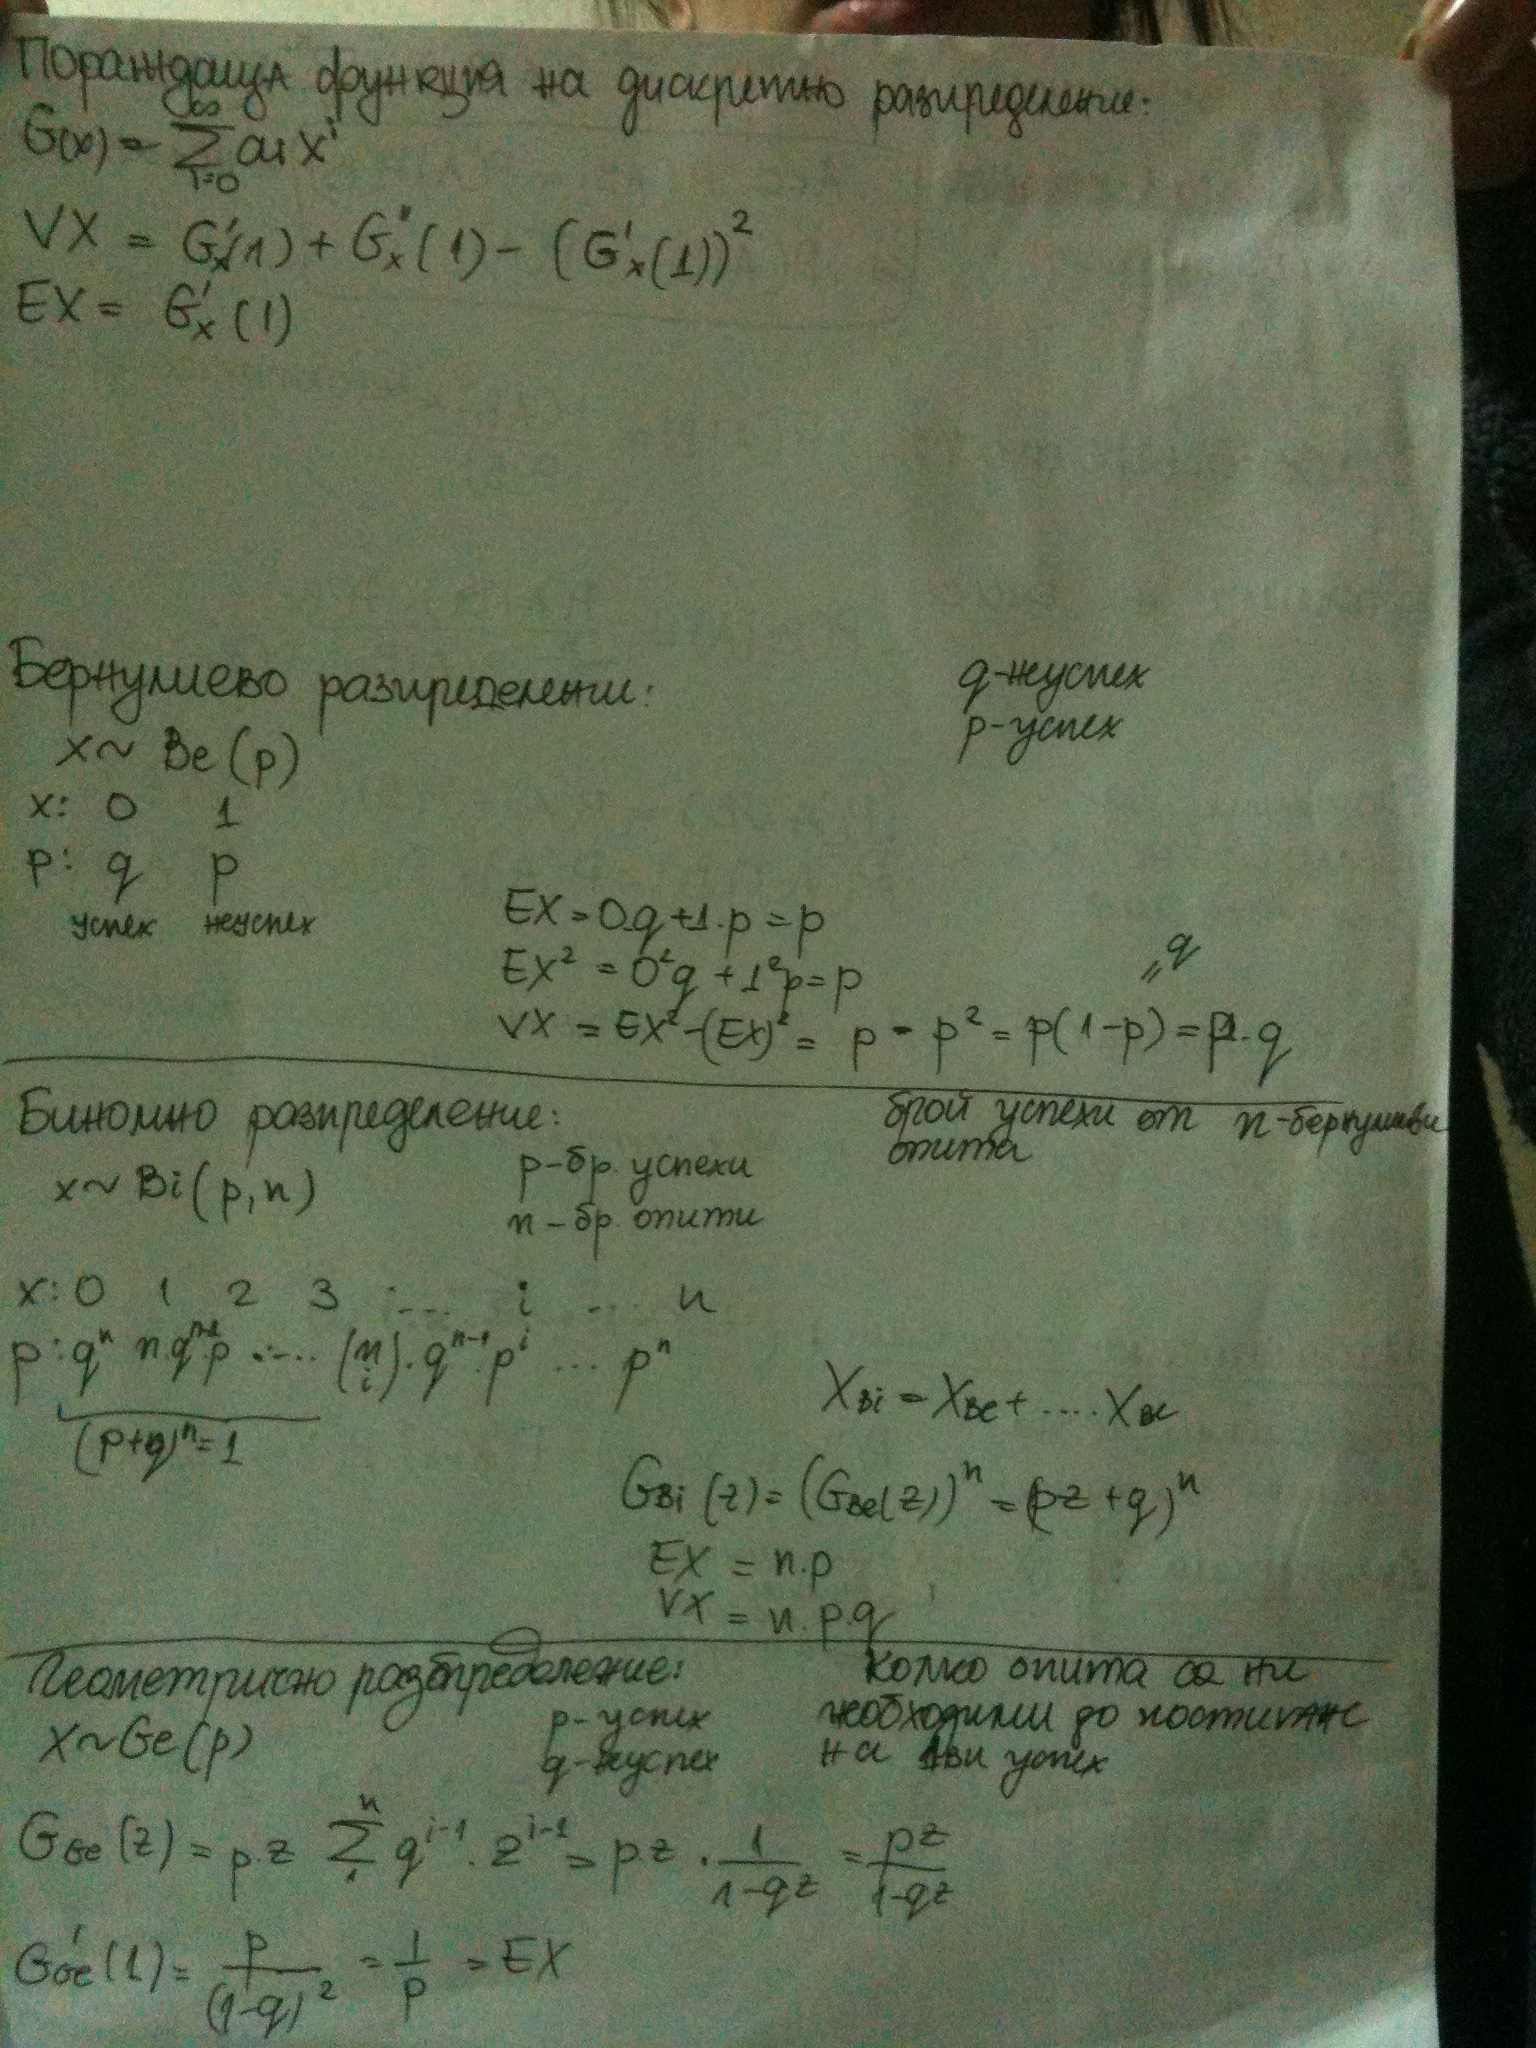 Пораждаща функция на дискретно разпределение:
G(x) = ∑_{i=0}^{∞} ai x^i
VX = G'x(1) + G''x(1) - (G'x(1))²
EX = G'x(1)
Бернулиево разпределение:
q-неуспех
p-успех
x~ Be(p)
x: 0 1
p: q p
успех неуспех
EX = 0.q+1.p = p
EX² = 0²q + 1²p = p
"q
VX = EX²-(EX)² = p - p² = p(1-p) = p.q
Биномно разпределение:
брой успехи от n-бернулиеви
опита
x~ Bi(p,n)
p-бр. успехи
n-бр. опити
x: 0 1 2 3 ... i ... n
p: q^n n.q^{n-1}.p ..... (n i).q^{n-1}.p^i ... p^n
(p+q)^n = 1
XBi = XBe + .... XBe
GBi(z) = (GBe(z))^n = (pz+q)^n
EX = n.p
VX = n.p.q
Геометрично разпределение:
колко опита са ни
необходими до постигане
на 1ви успех
X~Ge(p)
p-успех
q-неуспех
GGe(z) = p.z ∑_{1}^{n} q^{i-1}.z^{i-1} = pz . 1/(1-qz) = pz/(1-qz)
G'Ge(1) = p/(1-q)² = 1/p = EX